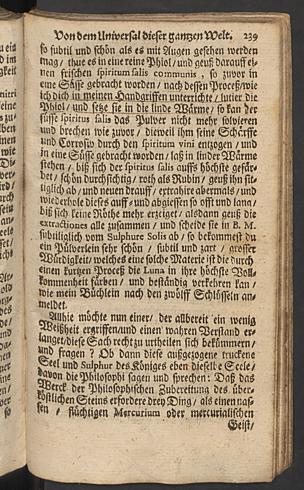 Von dem Universal dieser gantzen Welt. 239
so subtil und schön als es mit Augen gesehen werden
mag / thue es in eine reine Phiol / und geuß darauff ei-
nen frischen spiritum salis communis, so zuvor in
eine Süsse gebracht worden / nach dessen Proceß / wie
ich dich in meinen Handgriffen unterrichte / lutier die
Phiol / und setze sie in die linde Wärme / so kan der
süsse spiritus salis das Pulver nicht mehr solvieren
und brechen wie zuvor / dieweil ihm seine Schärffe
und Corrosiv durch den spiritum vini entzogen / und
in eine Süsse gebracht worden / laß in linder Wärme
stehen / biß sich der spiritus salis auffs höchste gefär-
bet / schön durchsichtig / roth als Rubin / geuß ihn sit-
tiglich ab / und neuen drauff / extrahire abermals / und
wiederhole dieses auff- und abgiessen so offt und lang /
biß sich keine Röthe mehr erzeiget / alsdann geuß die
extractiones alle zusammen / und scheide sie in B. M.
subtiliglich vom Sulphure Solis ab / so bekommest du
ein Pülverlein sehr schön / subtil und zart / grosser
Würdigkeit / welches eine solche Materie ist die durch
einen kurtzen Proceß die Luna in ihre höchste Voll-
kommenheit färben / und beständig verkehren kan /
wie mein Büchlein nach den zwölff Schlüsseln an-
meldet.
Allhie möchte nun einer / der allbereit ein wenig
Weißheit ergriffen / und einen wahren Verstand er-
langet / diese Sach recht zu urtheilen sich bekümmern /
und fragen? Ob dann diese außgezogene truckene
Seel und Sulphur des Königes eben dieselbe Seele /
davon die Philosophi sagen und sprechen: Daß das
Werck der Philosophischen Zubereitung des über-
köstlichen Steins erfordere drey Ding / als einen nas-
sen / flüchtigen Mercurium oder mercurialischen
Geist /